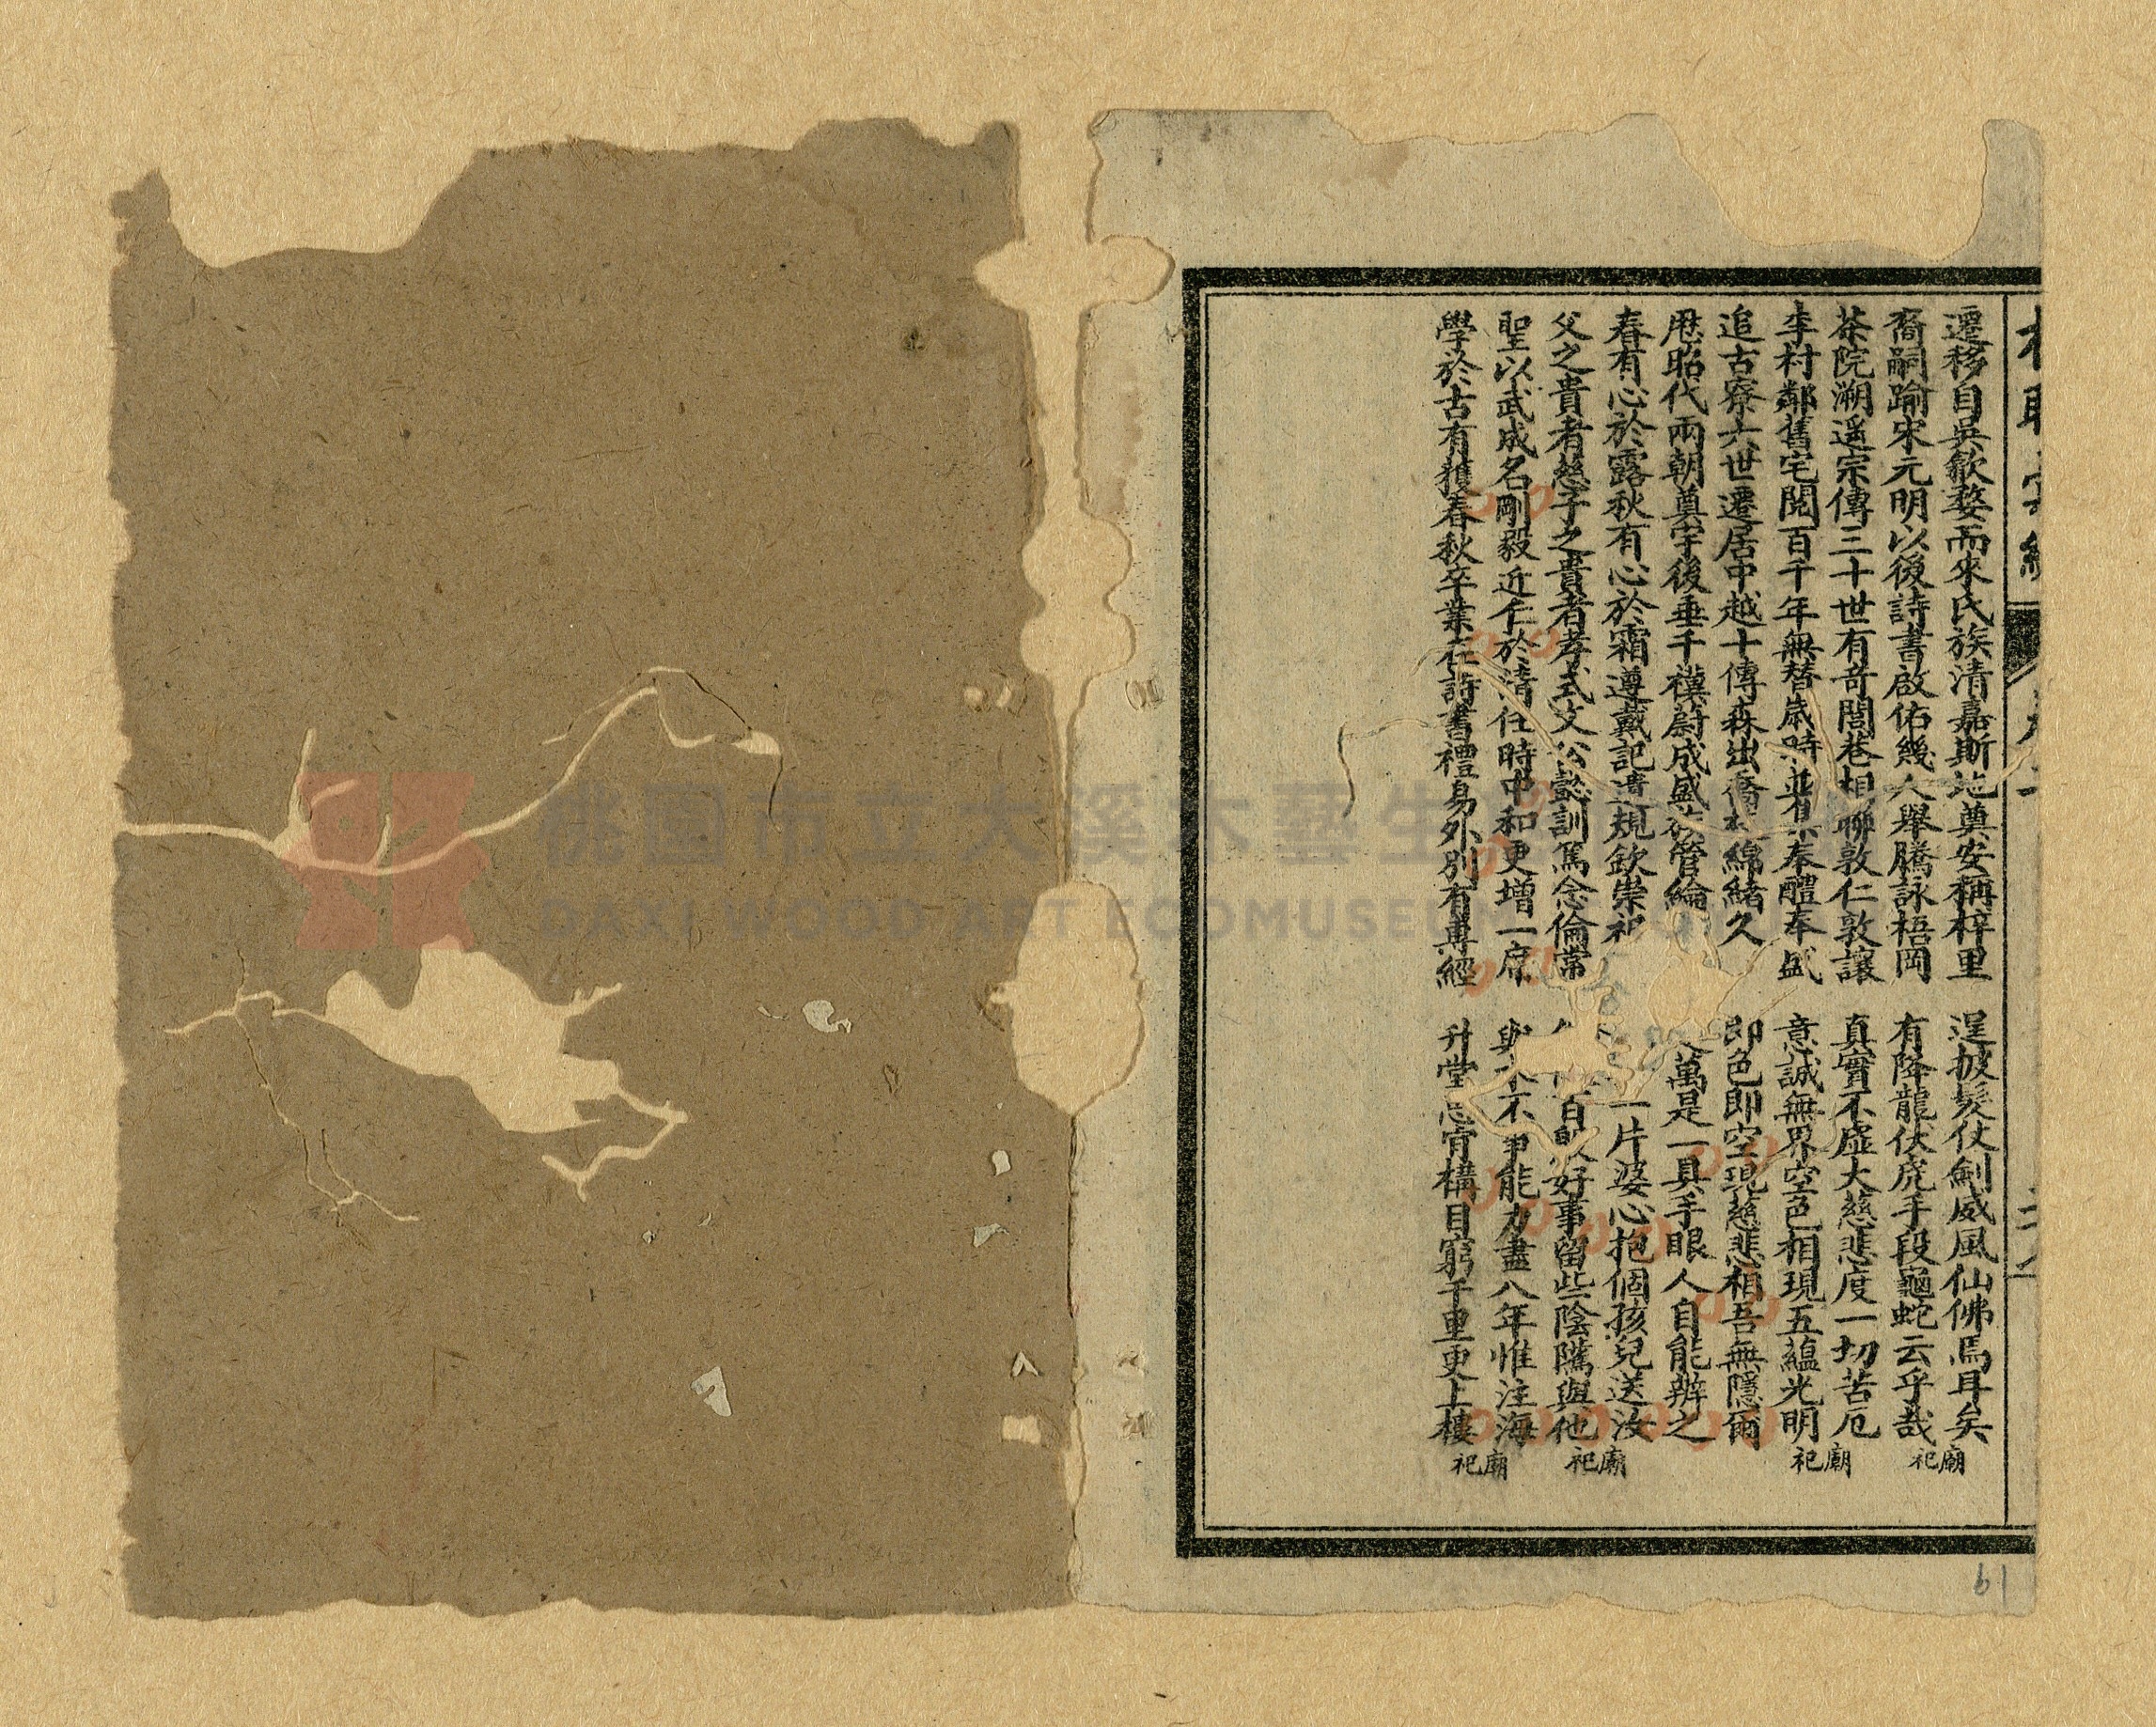 遷移自吳歙婺而來氏族清嘉斯地奠安稱梓里 逞披髮仗劍威風仙佛焉耳矣
裔嗣踰宋元明以後詩書啟佑幾人舉騰詠梧岡 有降龍伏虎手段龜蛇云乎哉 廟祀
茶院溯遥宗傳三十世有奇閭巷相聯敦仁敦讓 真實不虛大慈悲度一切苦厄
李村鄰舊宅閱百千年無替歲時 奉醴奉盛 意誠無界空色相現五蘊光明 廟祀
追古寮六世遷居中越十傳森出喬 綿緒久 即色即空現慈悲相吾無隱爾
昭代兩朝奠宇後垂千禩蔚成盛族管綸 萬是一具手眼人自能辦之
春有心於露秋有心於霜遵戴記 規欽崇祀 一片婆心抱個孩兒送汝
父之貴者慈子之貴者孝式文公懿訓篤念倫常 百 好事留些陰隲與他 廟祀
聖以武成名剛毅近仁於清任時中和更增一席 與 不爭能力盡八年惟注海
學於古有獲春秋卒業在詩書禮易外別有專經 升堂忘宵構目窮千里更上樓 廟祀
61
桃園市立大溪木藝生
DAXI WOOD ART ECOMUSEUM